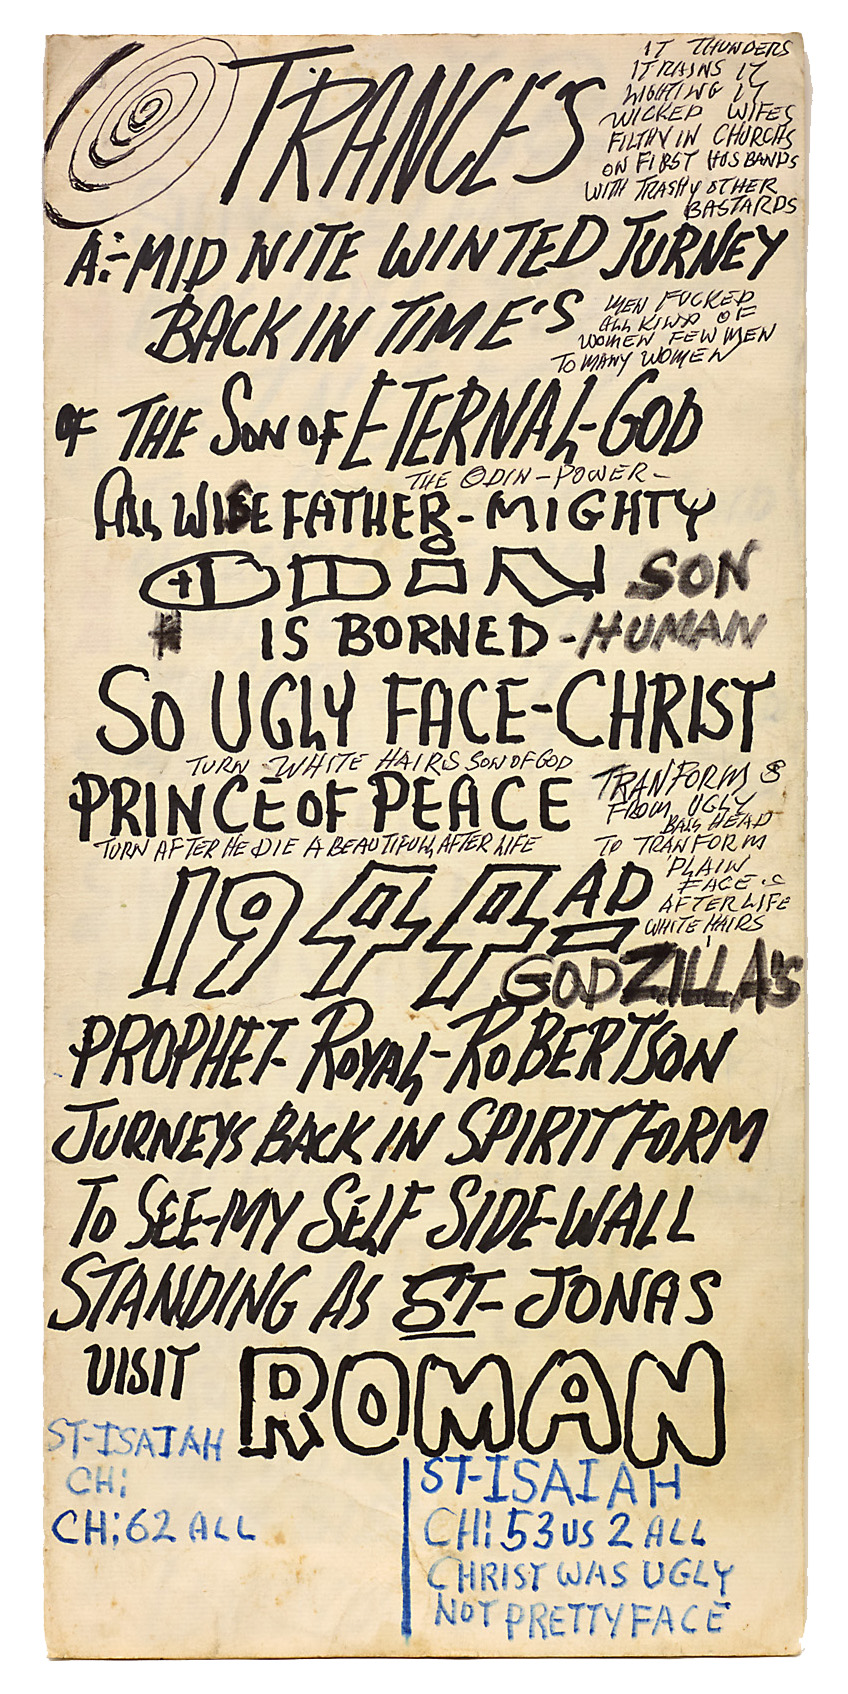 TRANCE'S
IT THUNDERS
IT RAINS IT
LIGHTING IT
WICKED WIFES
FILTHY IN CHURCHS
ON FIRST HOSBANDS
WITH TRASHY OTHER
BASTARDS
A:-MID NITE WINTED JURNEY
BACK IN TIME'S
MEN FUCKED
ALL KIND OF
WOMEN FEW MEN
TO MANY WOMEN
OF THE SON OF ETERNAL-GOD
THE ODIN-POWER-
ALL WISE FATHER-MIGHTY
ODIN SON
IS BORNED-HUMAN
SO UGLY FACE-CHRIST
TURN WHITE HAIRS SON OF GOD
PRINCE OF PEACE
TURN AFTER HE DIE A BEAUTIFUL AFTER LIFE
TRANFORMS
FROM UGLY
BALL HEAD
TO TRANFORM
PLAIN
FACE.S
AFTER LIFE
WHITE HAIRS
1944 AD
GODZILLA'S
PROPHET-ROYAL-ROBERTSON
JURNEYS BACK IN SPIRIT FORM
TO SEE-MY SELF SIDE-WALL
STANDING AS ST-JONAS
VISIT ROMAN
ST-ISAIAH
CH;
CH;62 ALL
ST-ISAIAH
CH;53 US 2 ALL
CHRIST WAS UGLY
NOT PRETTY FACE